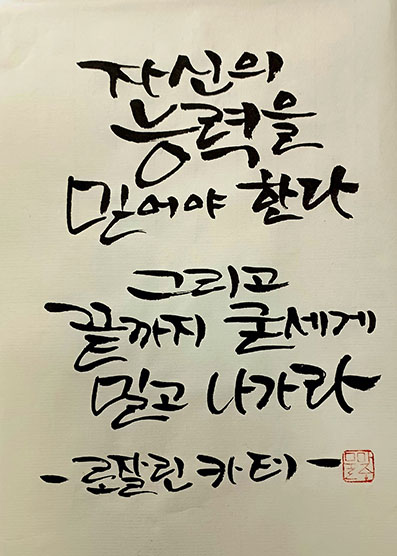 자신의
능력을
믿어야 한다
그리고
끝까지 굳세게
밀고 나가라
-로잘린 카터-